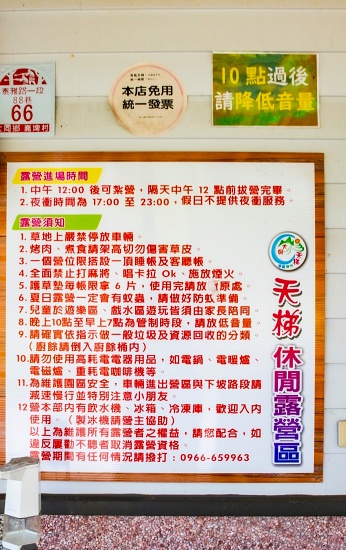 泰雅路一段
88巷
66
大同鄉 崙埤村
本店免用
統一發票
10點過後
請降低音量
露營進場時間
1.中午 12:00 後可紮營，隔天中午 12 點前拔營完畢。
2.夜衝時間為 17:00 至 23:00，假日不提供夜衝服務。
露營須知
1.草地上嚴禁停放車輛。
2.烤肉、煮食請架高切勿傷害草皮。
3.一個營位限搭設一頂睡帳及客廳帳。
4.全面禁止打麻將、唱卡拉 Ok、施放煙火。
5.護草墊每帳限拿 6 片，使用完請放 原處。
6.夏日露營一定會有蚊蟲，請做好防蚊準備。
7.兒童於遊樂區、戲水區遊玩皆須由家長陪同。
8.晚上10點至早上7點為管制時段，請放低音量。
9.請確實依指示做一般垃圾及資源回收的分類
（廚餘請倒入廚餘桶內）
10.請勿使用高耗電電器用品，如電鍋、電暖爐、
電磁爐、重耗電咖啡機等。
11.為維護園區安全，車輛進出營區與下坡路段請
減速慢行並特別注意小朋友。
12營本部內有飲水機、冰箱、冷凍庫，歡迎入內
使用。（製冰機請營主協助）
以上為維護所有露營者之權益，請您配合，如
違反屢勸不聽者取消露營資格。
露營期間有任何情況請撥打：0966-659963
天梯休閒露營區